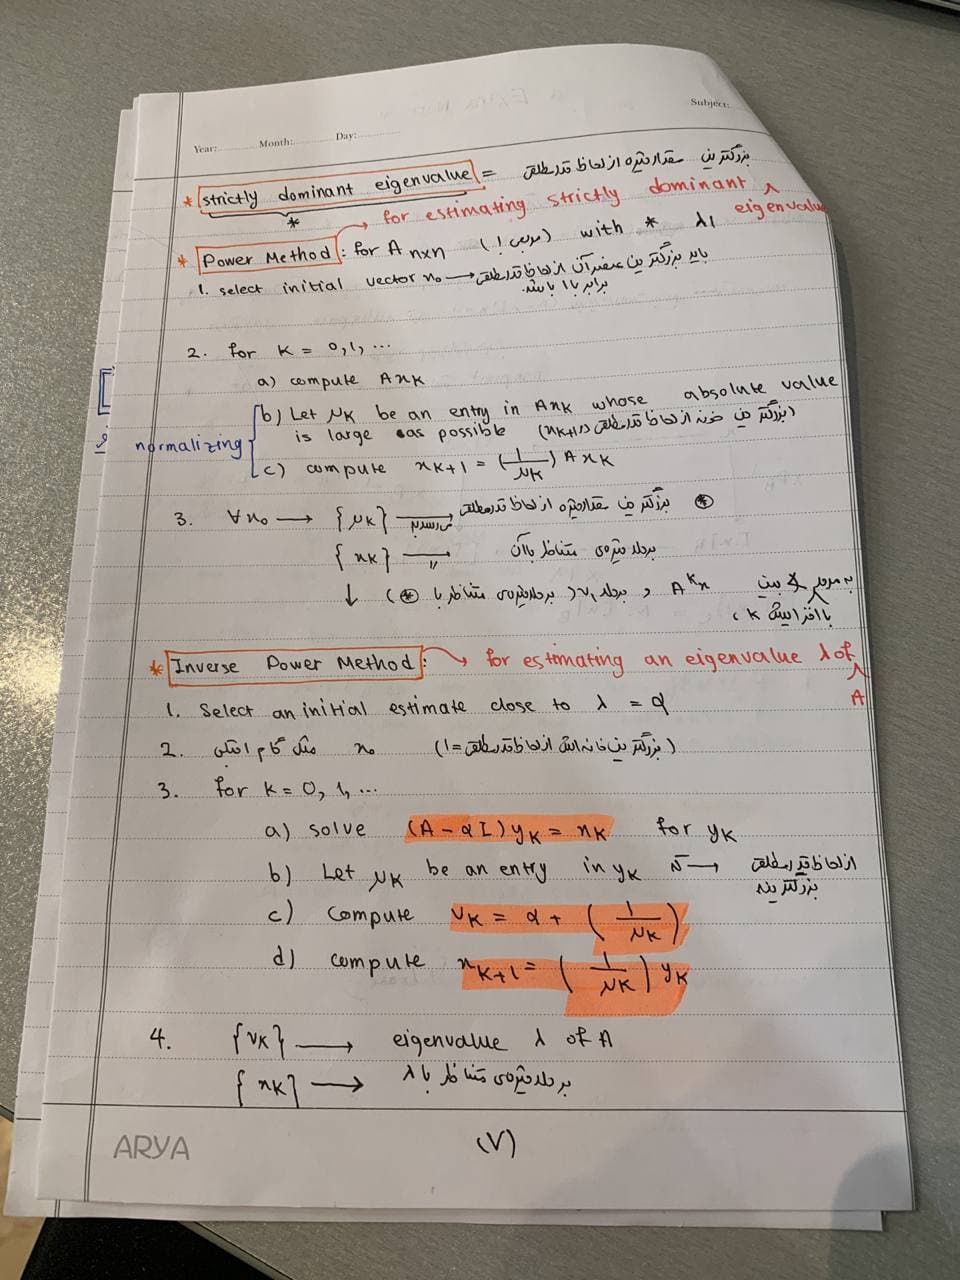 Subject:
Year: Month: Day:
* strictly dominant eigenvalue = بزرگترین مقدار ویژه از لحاظ قدر مطلق
*
→ for estimating strictly dominant eigenvalue
* Power Method: for A n×n (مربعی!) with * λ1
1. select initial vector x0 → باید بزرگترین عنصر آن از لحاظ قدر مطلق
برابر با 1 باشد.
2. for K = 0,1, ...
a) compute AxK
normalizing
b) Let μK be an entry in AxK whose absolute value
is large as possible (بزرگترین خونه از لحاظ قدر مطلق در xK+1)
c) compute xK+1 = (1/μK) A xK
3. ∀x0 → {μK} → میرسد به بزرگترین مقدار ویژه از لحاظ قدر مطلق ⊛
{xK} → " بردار ویژه‌ی متناظر با آن
↓ به مرور بین A^K x و بردار v1 (بردار ویژه‌ی متناظر با ⊛)
با افزایش K،
* Inverse Power Method: → for estimating an eigenvalue λ of A
1. Select an initial estimate close to λ = α
2. x0 مثل گام (بزرگترین خانه اش از لحاظ قدر مطلق = 1)
3. for K = 0, 1, ...
a) solve (A - αI) yK = xK for yK
b) Let μK be an entry in yK که → از لحاظ قدر مطلق
بزرگترینه
c) compute νK = α + (1/μK)
d) compute xK+1 = (1/μK) yK
4. {νK} → eigenvalue λ of A
{xK} → بردار ویژه‌ی متناظر با λ
ARYA
(7)